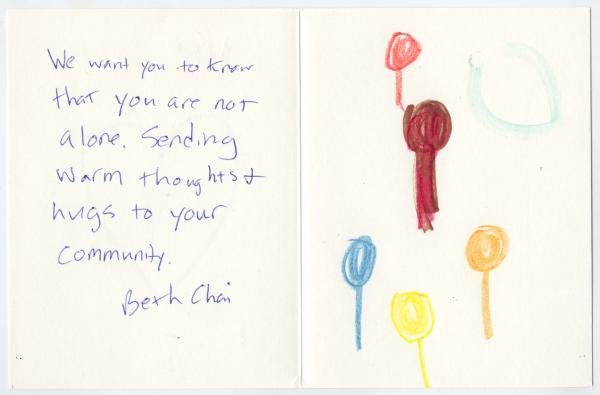 We want you to know
that you are not
alone. Sending
warm thoughts &
hugs to your
community.
Beth Chai